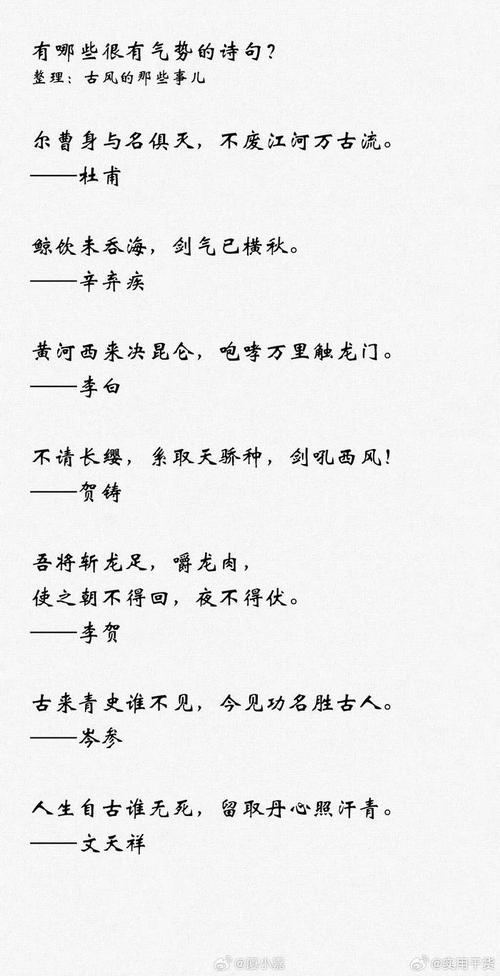 有哪些很有气势的诗句？
整理：古风的那些事儿
尔曹身与名俱灭，不废江河万古流。
——杜甫
鲸饮未吞海，剑气已横秋。
——辛弃疾
黄河西来决昆仑，咆哮万里触龙门。
——李白
不请长缨，系取天骄种，剑吼西风！
——贺铸
吾将斩龙足，嚼龙肉，
使之朝不得回，夜不得伏。
——李贺
古来青史谁不见，今见功名胜古人。
——岑参
人生自古谁无死，留取丹心照汗青。
——文天祥
@实用干货